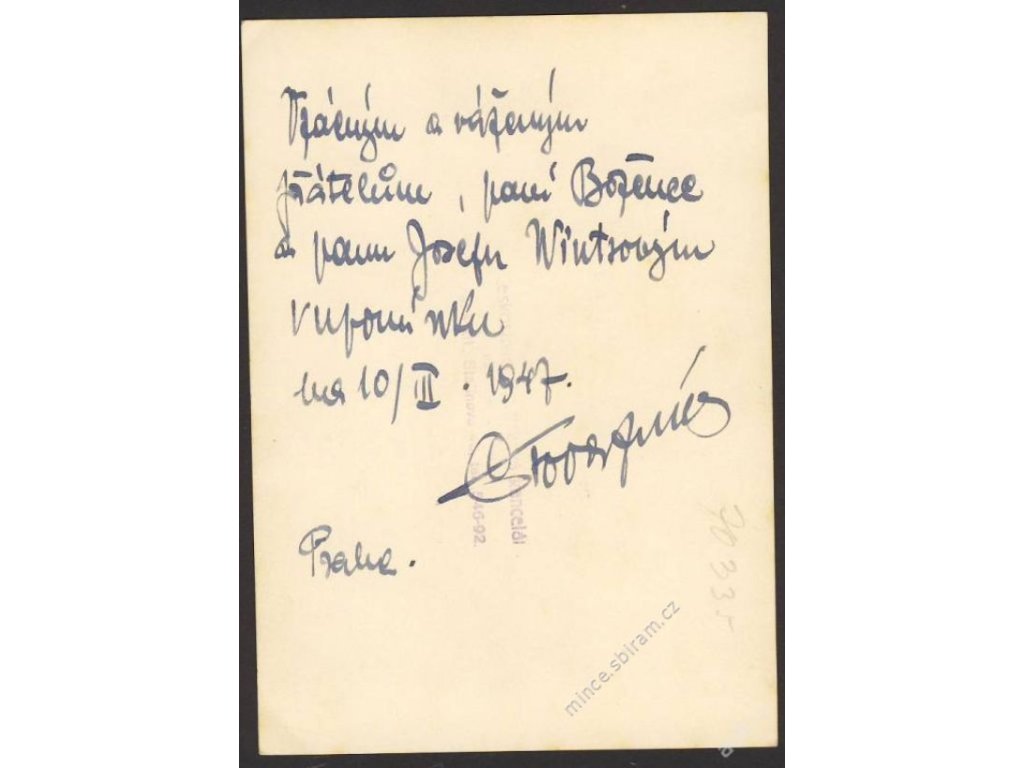 Vzácným a váženým
přátelům, paní Božence
a panu Josefu Wintrovým
vzpomínku
na 10/III. 1947.
Praha.
ncelář
46-92.
70 335
mince.sbiram.cz